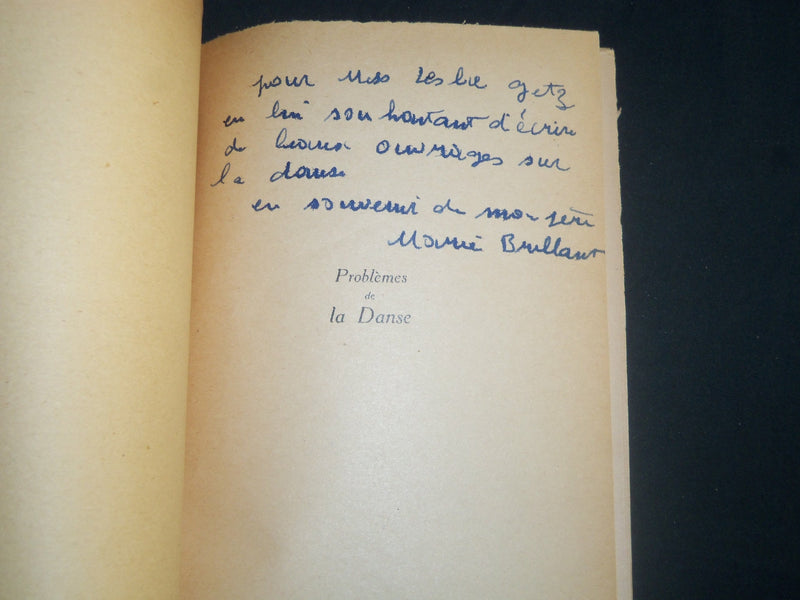 pour Miss Leslie Getz
en lui souhaitant d'écrire
de beaux ouvrages sur
la danse
en souvenir de mon père
Marie Brillant
Problèmes
de
la Danse